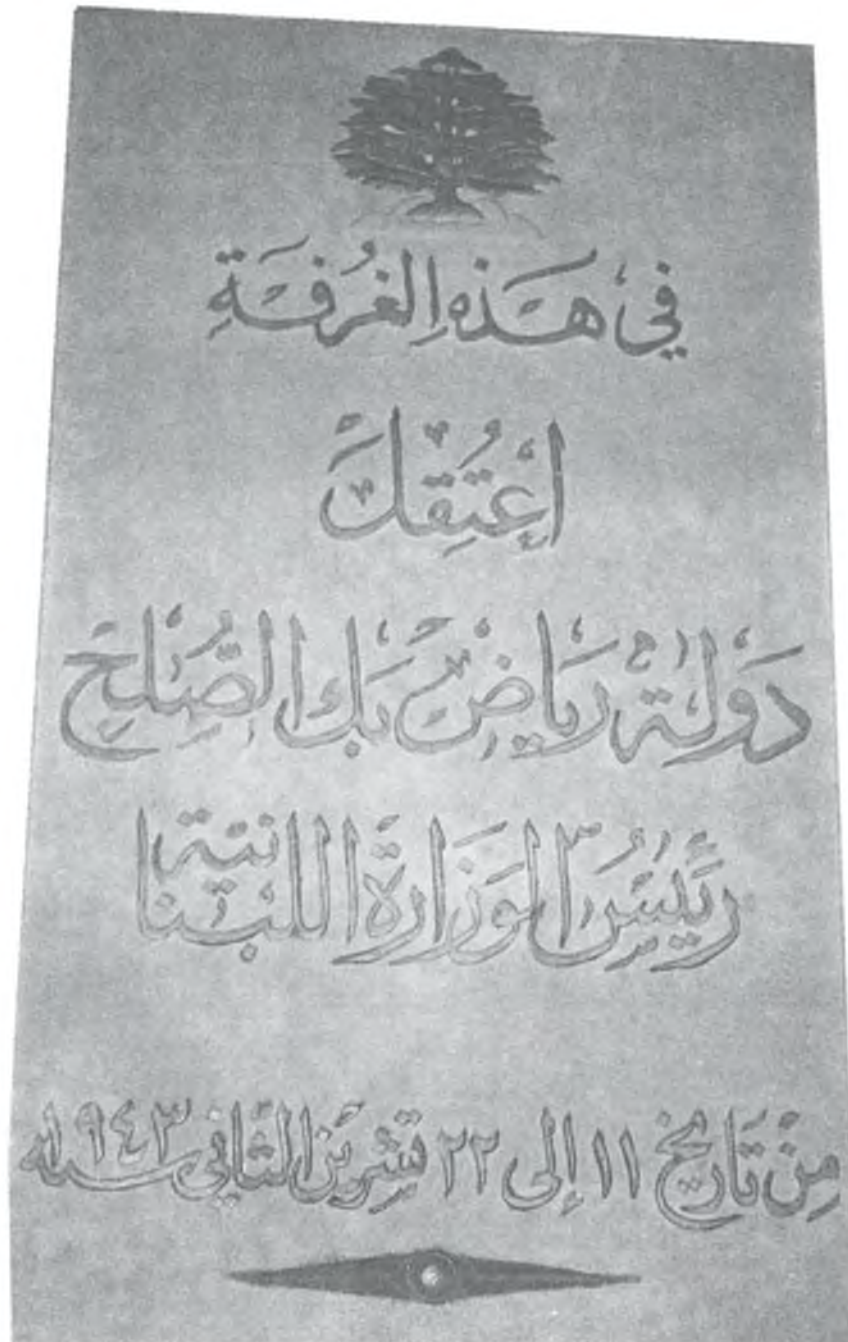 في هذه الغرفة
اعتقل
دولة رياض بك الصلح
رئيس الوزارة اللبنانية
من تاريخ ١١ إلى ٢٢ تشرين الثاني سنة ١٩٤٣